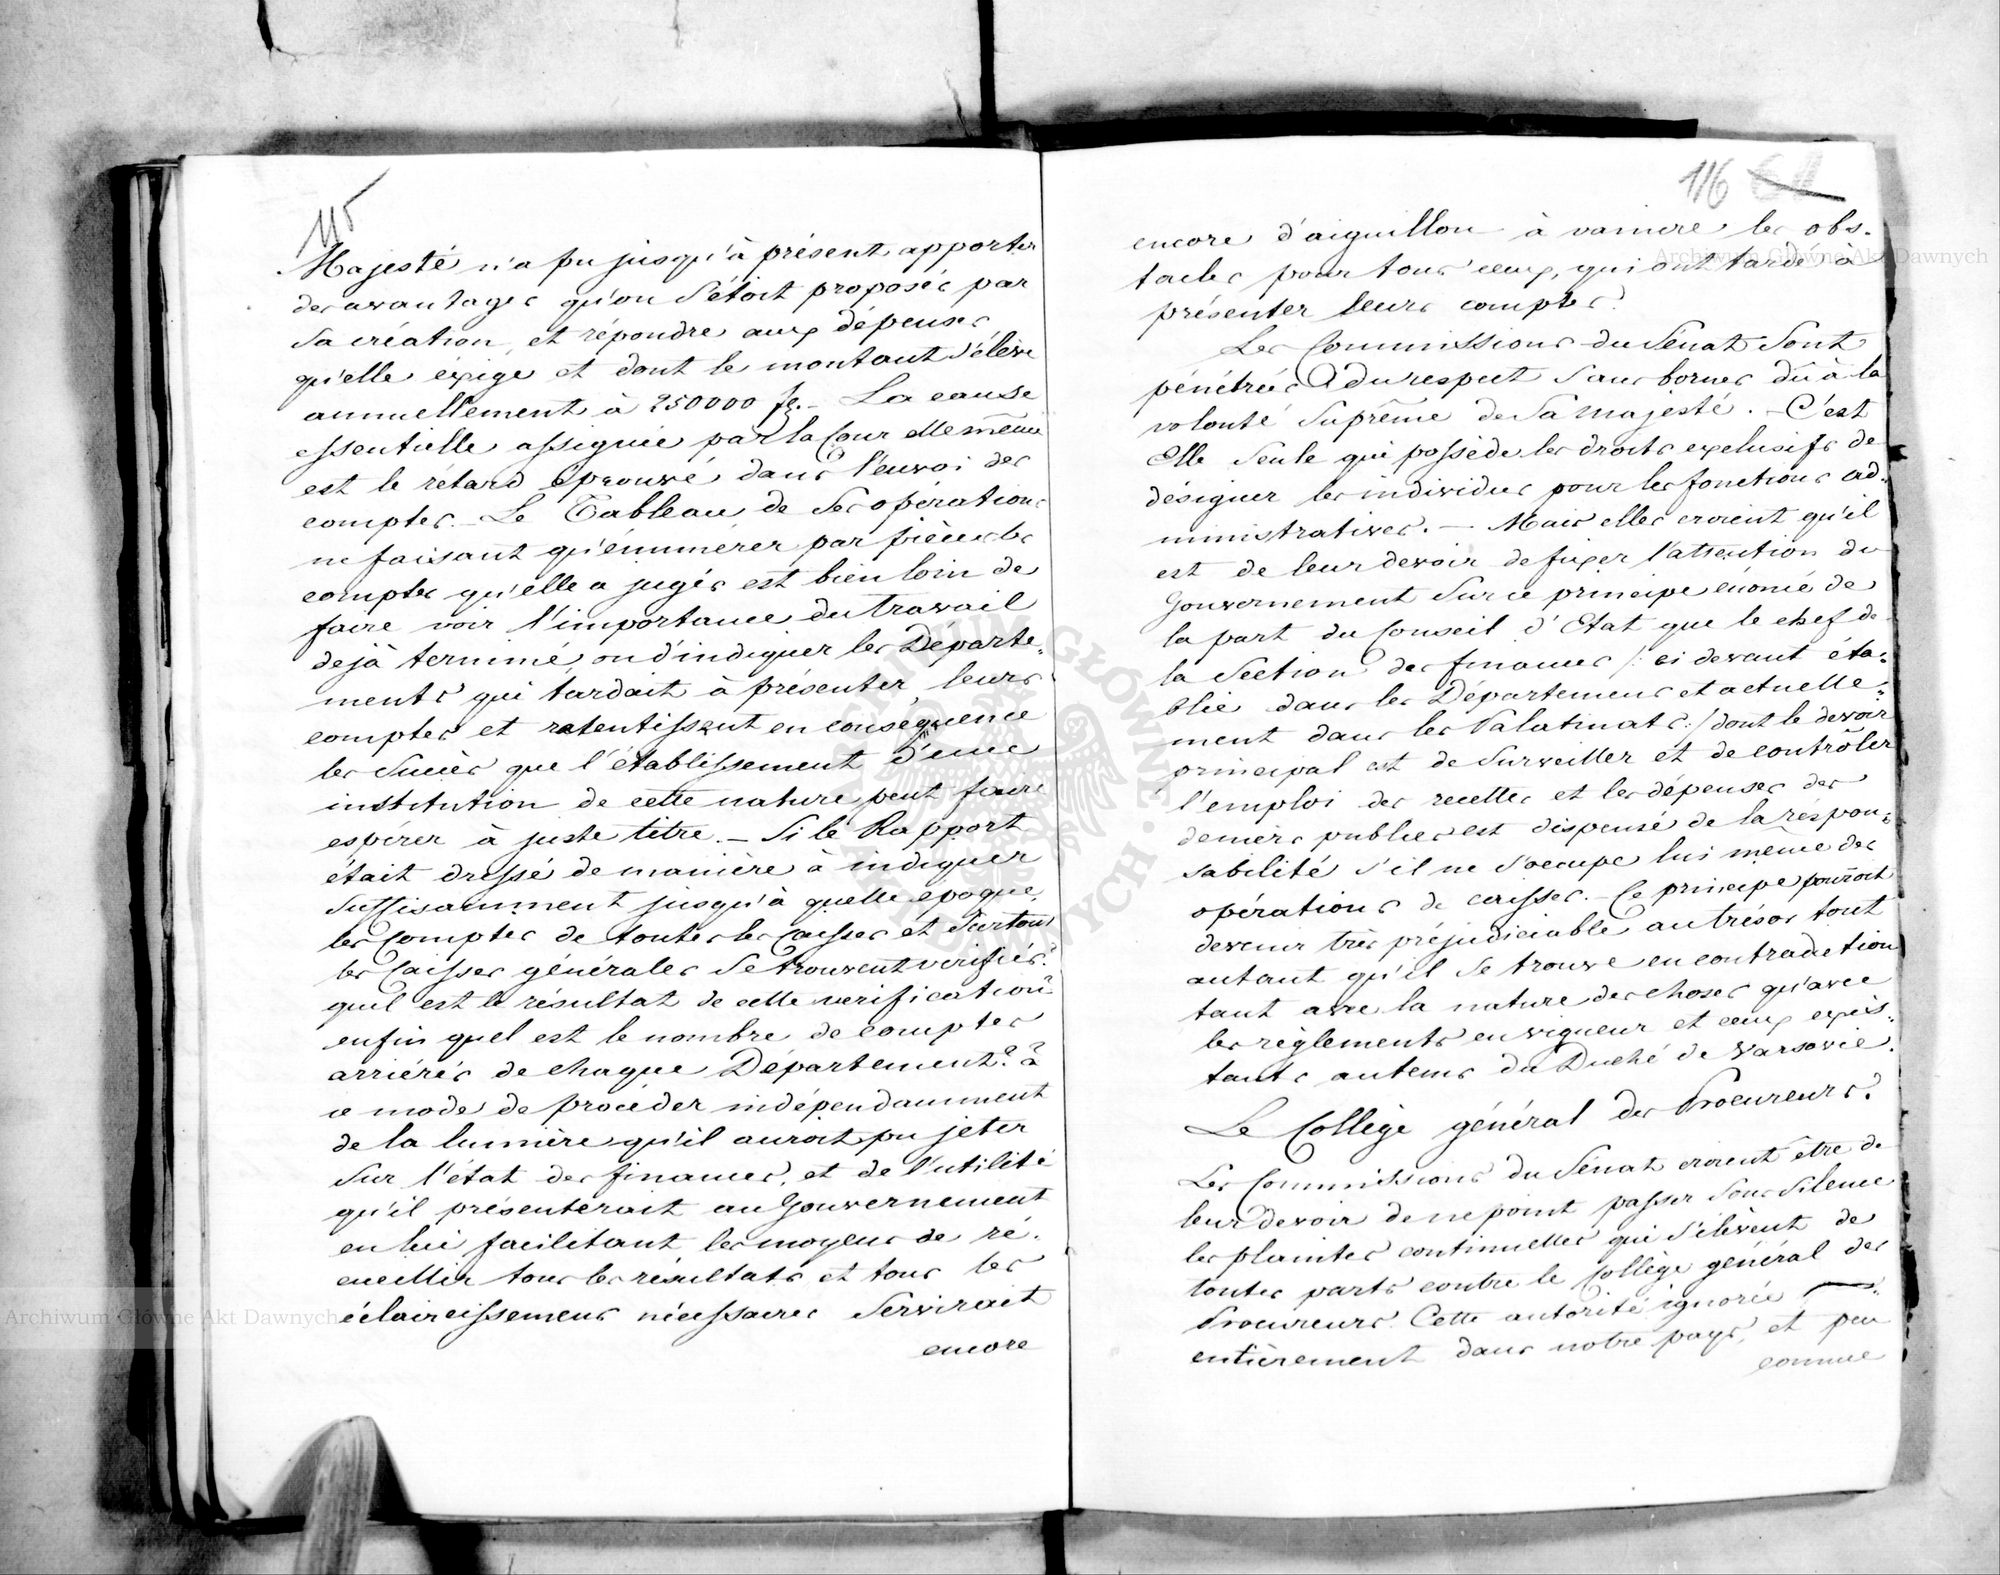 115
Majesté n'a pu jusqu'à présent apporter
des avantages qu'on s'étoit proposés par
sa création, et répondre aux dépenses
qu'elle exige et dont le montant s'élève
annuellement à 250000 fl. – La cause
essentielle assignée par la Cour elle même
est le rétard éprouvé dans l'envoi des
comptes. – Le Tableau de ses opérations
ne faisant qu'énumérer par pièces les
comptes qu'elle a jugés est bien loin de
faire voir l'importance du travail
dejà terminé, ou d'indiquer les Départe=
ments qui tardait à présenter leurs
comptes et ralentissent en conséquence
les succès que l'établissement d'une
institution de cette nature peut faire
espérer à juste titre. – Si le Rapport
était dressé de manière à indiquer
suffisamment jusqu'à quelle époque,
les Comptes de toutes les Caisses et surtout
les Caisses générales se trouvent vérifiés?
quel est le résultat de cette verification?
enfin quel est le nombre de comptes
arriérés de chaque Département? à
ce mode de procéder indépendamment
de la lumière qu'il auroit pu jeter
sur l'état des finances, et de l'utilité
qu'il présenterait au Gouvernement
en lui facilitant les moyens de re=
cueillir tous les résultats et tous les
éclaircissemens nécessaires servirait
encore
116 61
encore d'aiguillon à vaincre les obs=
tacles pour tous ceux, qui ont tardé à
présenter leurs comptes.
Les Commissions du Sénat sont
pénétrées du respect sans bornes dû à la
volonté suprême de Sa Majesté. – C'est
Elle seule qui possède les droits exclusifs de
désigner les individus pour les fonctions ad=
ministratives. – Mais elles croient qu'il
est de leur devoir de fixer l'attention du
Gouvernement sur ce principe énoncé de
la part du Conseil d'Etat que le chef de
la Section des finances /: ci devant éta=
blie dans les Départemens et actuelle=
ment dans les Palatinats :/ dont le devoir
principal est de surveiller et de contrôler
l'emploi des recettes et les dépenses des
deniers publics est dispensé de la respon=
sabilité s'il ne s'occupe lui même des
opérations de caisses. – Ce principe pourroit
devenir très préjudiciable au trésor tout
autant qu'il se trouve en contradiction
tant avec la nature des choses qu'avec
les règlements en vigueur et ceux exis=
tants au tems du Duché de Varsovie.
Le Collège général des Procureurs.
Les Commissions du Sénat croient être de
leur devoir de ne point passer sous silence
les plaintes continuelles qui s'élèvent de
toutes parts contre le Collège général des
Procureurs. Cette autorité ignorée
entièrement dans notre pays, et peu
connue
Archiwum Główne Akt Dawnych
Archiwum Główne Akt Dawnych
ARCHIWUM GŁÓWNE AKT DAWNYCH